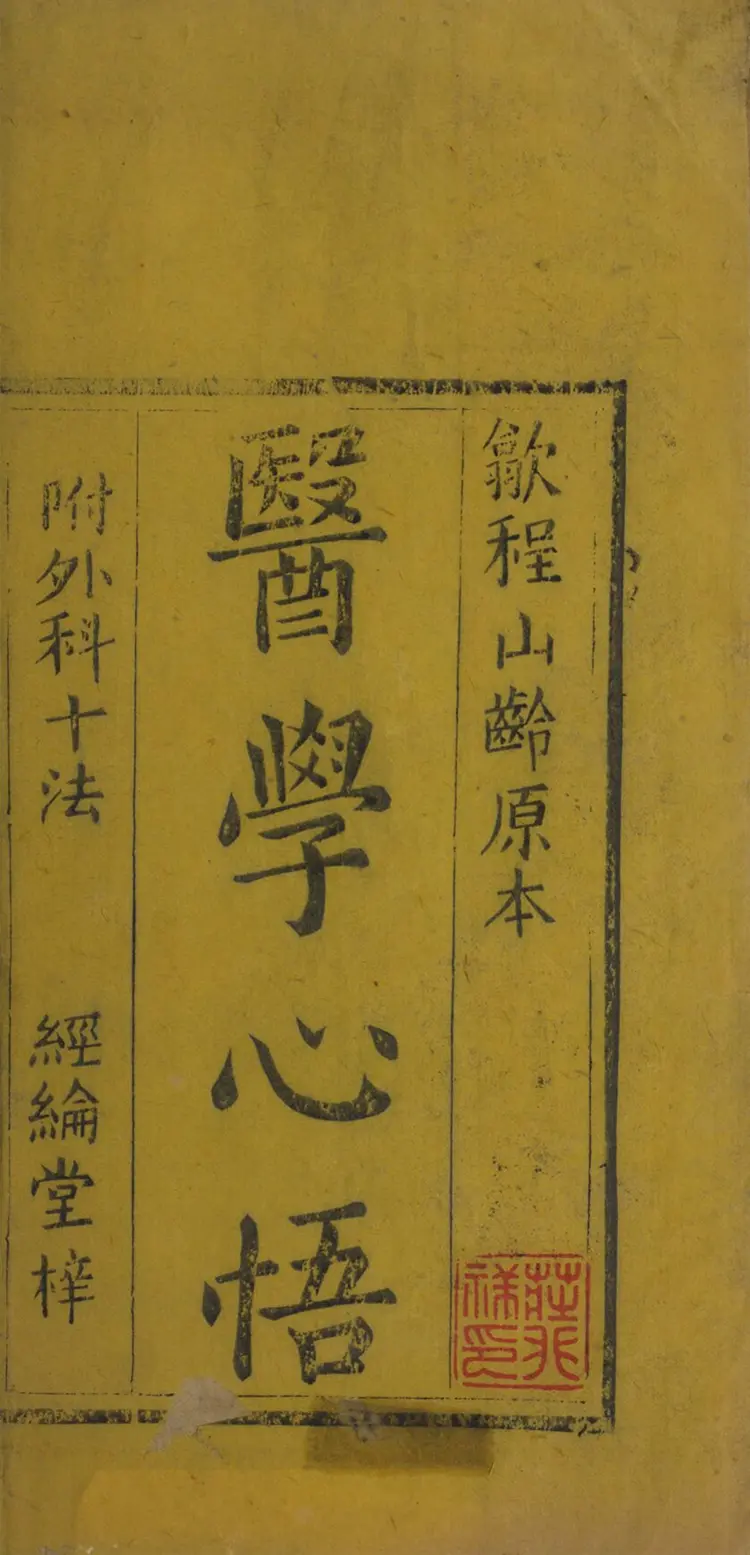 歙程山齡原本
醫學心悟
附外科十法 經綸堂梓
莊兆祥印